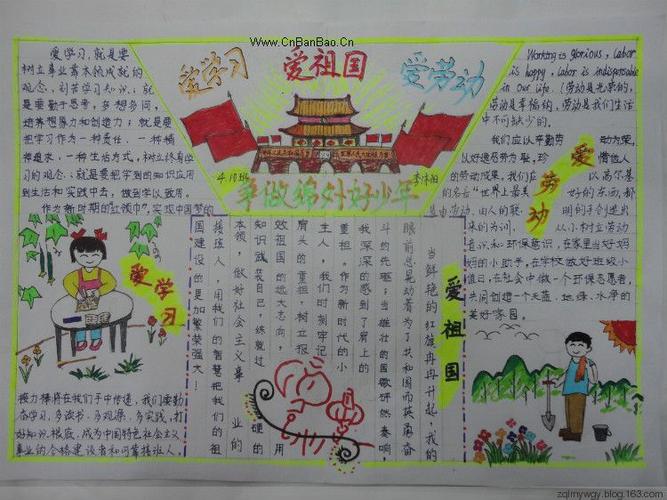 www.CnBanBao.Cn
爱学习
爱祖国
爱劳动
4.10班
争做锦外好少年
爱学习,就是要
树立事业靠本领成就的
观念,刻苦学习知识;就
是要勤于思考,多想多问,
培养想象力和创造力;就是要
把学习作为一种责任、一种精
神追求、一种生活方式,树立终身学
习的观念;就是要把学到的知识应用
到生活和实践中去,做到学以致用。
作为新时期的红领巾,实现中国梦的
接力棒将在我们手中传递,我们要勤
奋学习、多读书、多观源、多实践,打
好知识根底,成为中国特色社会主义
事业的合格建设者和可靠接班人。
爱学习
爱祖国
当鲜艳的红旗冉冉升起,我的
眼前总晃动着为了共和国而英勇奋
斗的先驱;当雄壮的国歌研然奏响,
我深深的感到了肩上的
重担。作为新时代的小
主人,我们时刻牢记
肩头的重担,树立报
效祖国的远大志向,用
知识践装自己,练就过硬的
本领,做好社会主义事业的
接班人,用我们的智慧把我们的祖
国建设的更加繁荣强大!
Working is glorious, labor
is happy, labor is indispensable
in our life. (劳动是光荣的,
劳动是幸福的,劳动是我们生活
中不可缺少的。
我们应以辛勤劳动为荣,
以好逸恶劳为耻,珍惜他人
的劳动成果,我们在以高尔基
的名言“世界上最美好的东西,都
是由劳动、由人的聪明的手创造出
来的为训,从小树立劳动
意识和环保意识,在家里当好妈
妈的小助手,在学校做好班级小
值日,在社会中做一个环保志愿者,
共同创造一个天蓝、地绿、水净的
美好家园。
爱劳动
zqlmywgy.blog.163.com